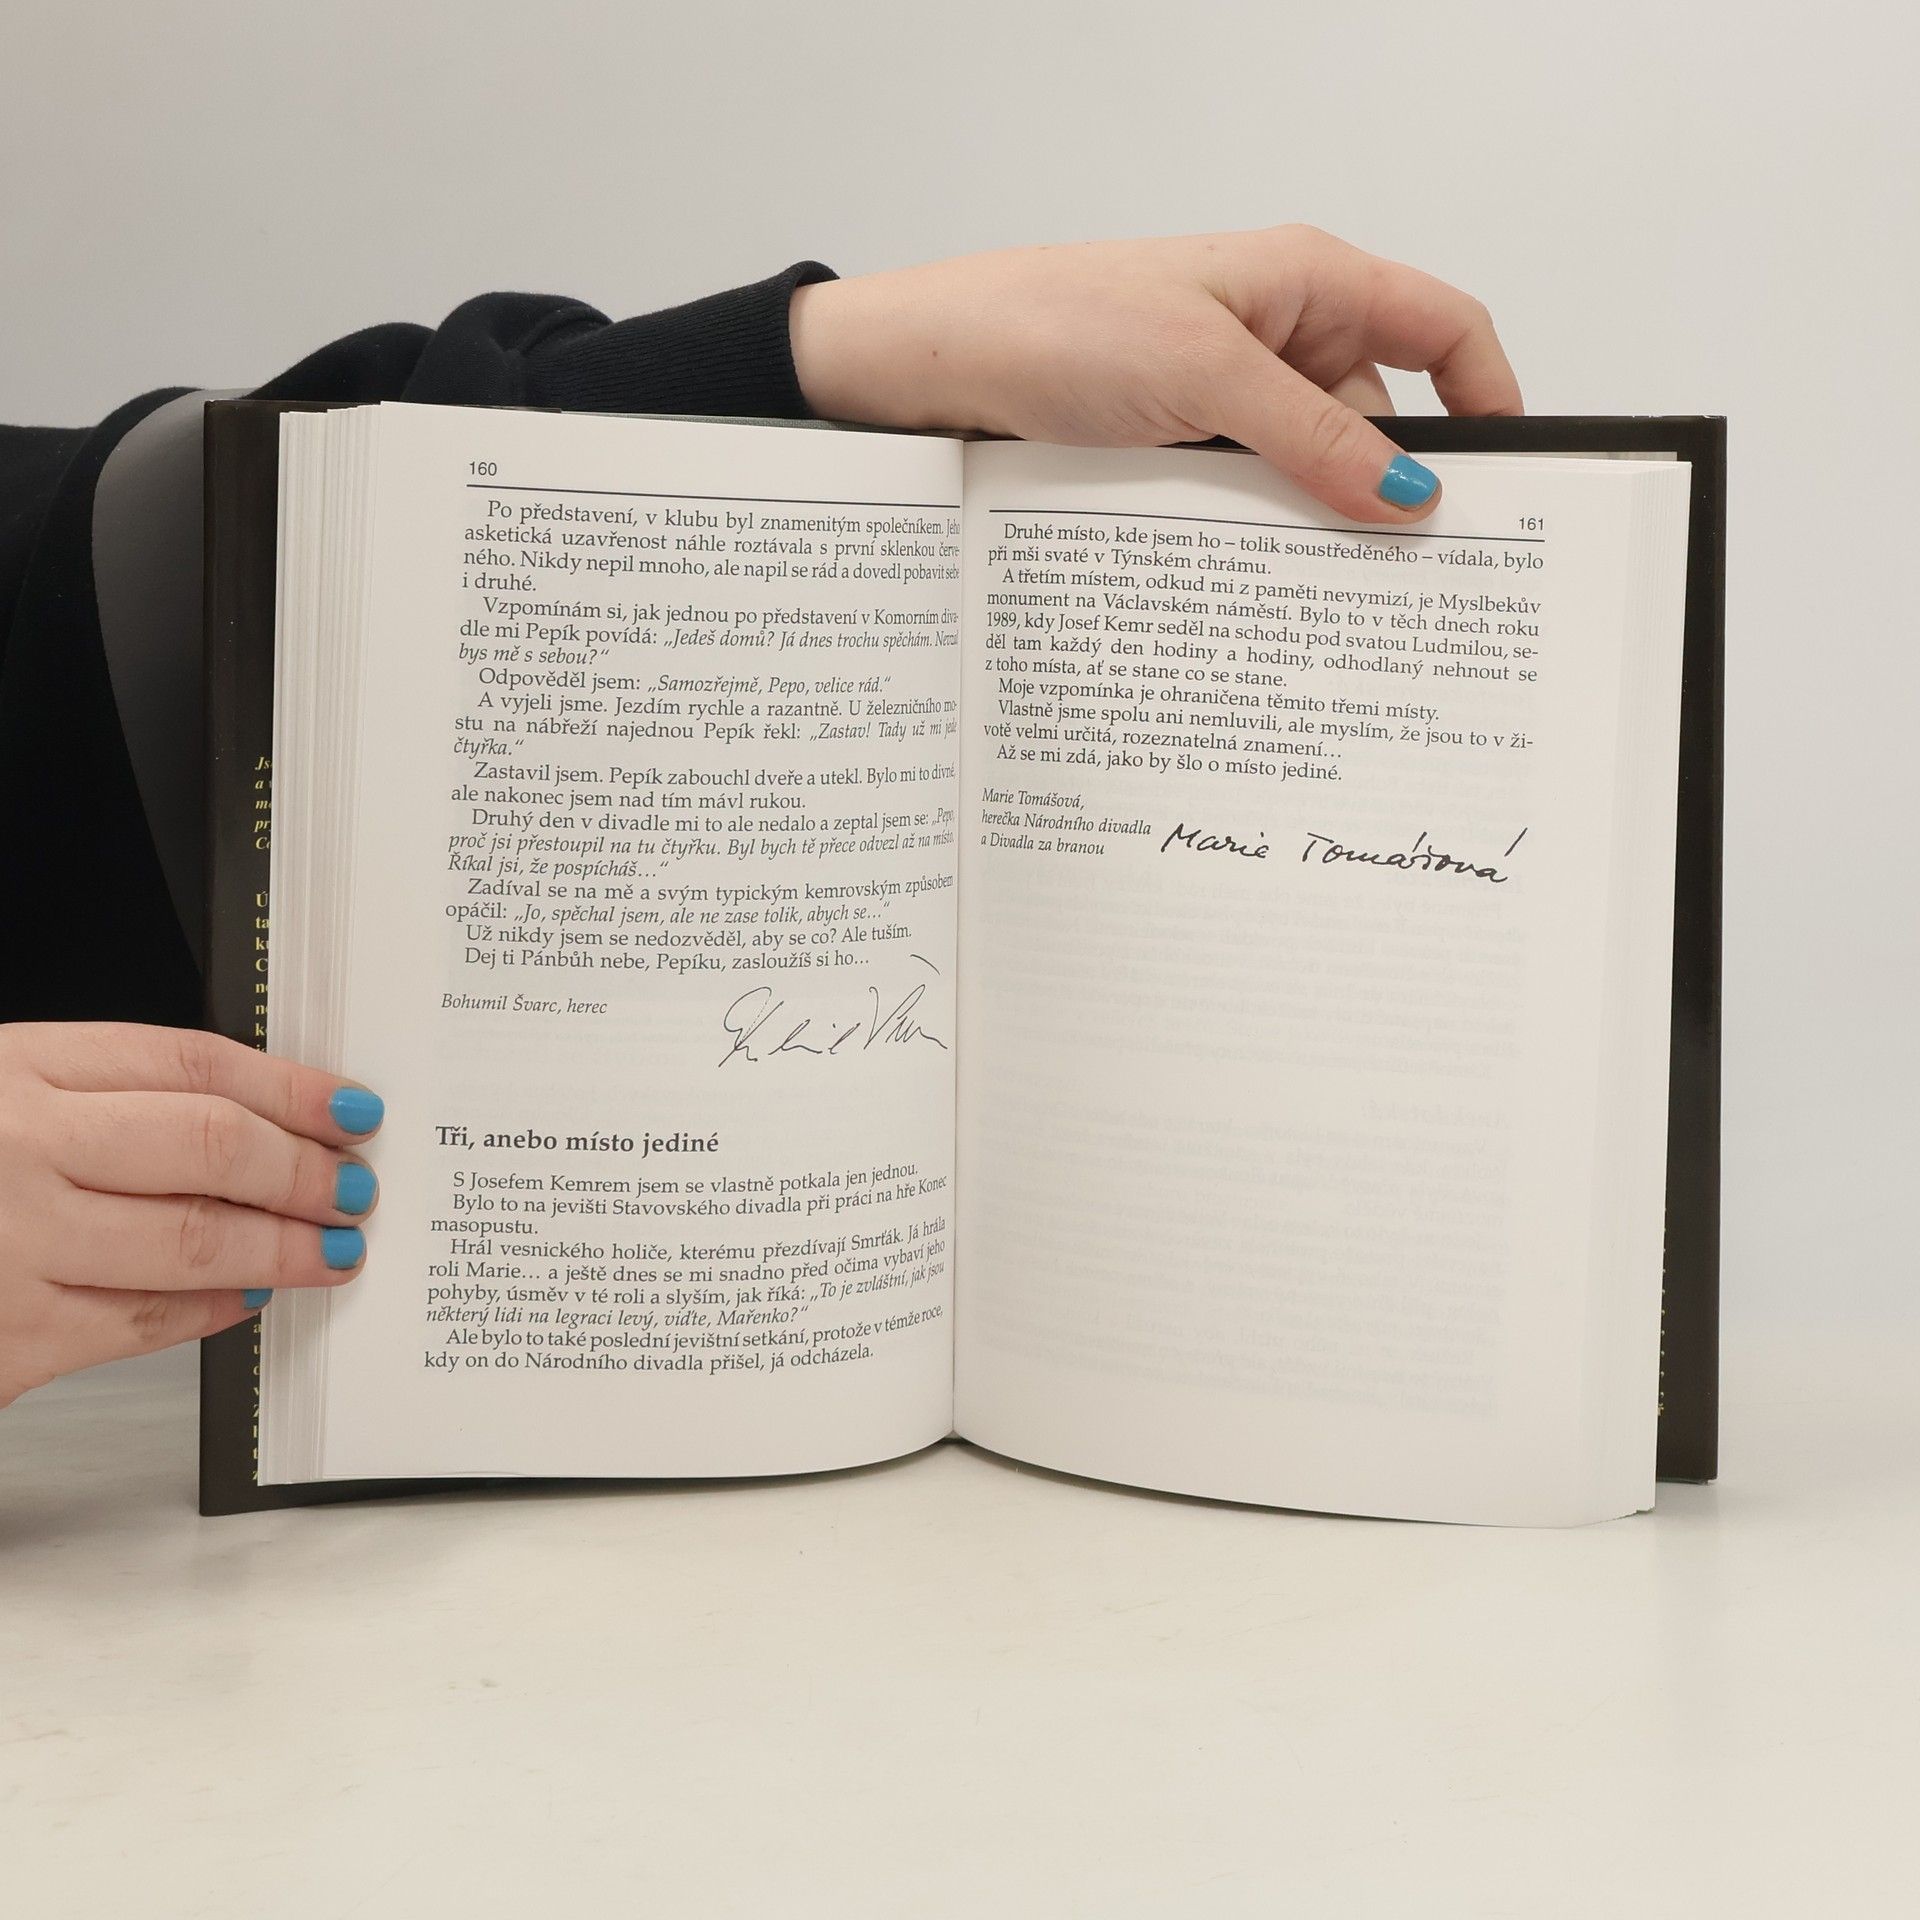 160
Po představení, v klubu byl znamenitým společníkem. Jeho
asketická uzavřenost náhle roztávala s první sklenkou červe-
ného. Nikdy nepil mnoho, ale napil se rád a dovedl pobavit sebe
i druhé.
Vzpomínám si, jak jednou po představení v Komorním diva-
dle mi Pepík povídá: „Jedeš domů? Já dnes trochu spěchám. Nevzal
bys mě s sebou?“
Odpověděl jsem: „Samozřejmě, Pepo, velice rád.“
A vyjeli jsme. Jezdím rychle a razantně. U železničního mo-
stu na nábřeží najednou Pepík řekl: „Zastav! Tady už mi jede
čtyřka.“
Zastavil jsem. Pepík zabouchl dveře a utekl. Bylo mi to divné,
ale nakonec jsem nad tím mávl rukou.
Druhý den v divadle mi to ale nedalo a zeptal jsem se: „Pepo,
proč jsi přestoupil na tu čtyřku. Byl bych tě přece odvezl až na místo.
Říkal jsi, že pospícháš…“
Zadíval se na mě a svým typickým kemrovským způsobem
opáčil: „Jo, spěchal jsem, ale ne zase tolik, abych se…“
Už nikdy jsem se nedozvěděl, aby se co? Ale tuším.
Dej ti Pánbůh nebe, Pepíku, zasloužíš si ho…
Bohumil Švarc, herec
Tři, anebo místo jediné
S Josefem Kemrem jsem se vlastně potkala jen jednou.
Bylo to na jevišti Stavovského divadla při práci na hře Konec
masopustu.
Hrál vesnického holiče, kterému přezdívají Smrťák. Já hrála
roli Marie… a ještě dnes se mi snadno před očima vybaví jeho
pohyby, úsměv v té roli a slyším, jak říká: „To je zvláštní, jak jsou
některý lidi na legraci levý, viďte, Mařenko?“
Ale bylo to také poslední jevištní setkání, protože v témže roce,
kdy on do Národního divadla přišel, já odcházela.
161
Druhé místo, kde jsem ho – tolik soustředěného – vídala, bylo
při mši svaté v Týnském chrámu.
A třetím místem, odkud mi z paměti nevymizí, je Myslbekův
monument na Václavském náměstí. Bylo to v těch dnech roku
1989, kdy Josef Kemr seděl na schodu pod svatou Ludmilou, se-
děl tam každý den hodiny a hodiny, odhodlaný nehnout se
z toho místa, ať se stane co se stane.
Moje vzpomínka je ohraničena těmito třemi místy.
Vlastně jsme spolu ani nemluvili, ale myslím, že jsou to v ži-
votě velmi určitá, rozeznatelná znamení…
Až se mi zdá, jako by šlo o místo jediné.
Marie Tomášová,
herečka Národního divadla
a Divadla za branou
Marie Tomášová